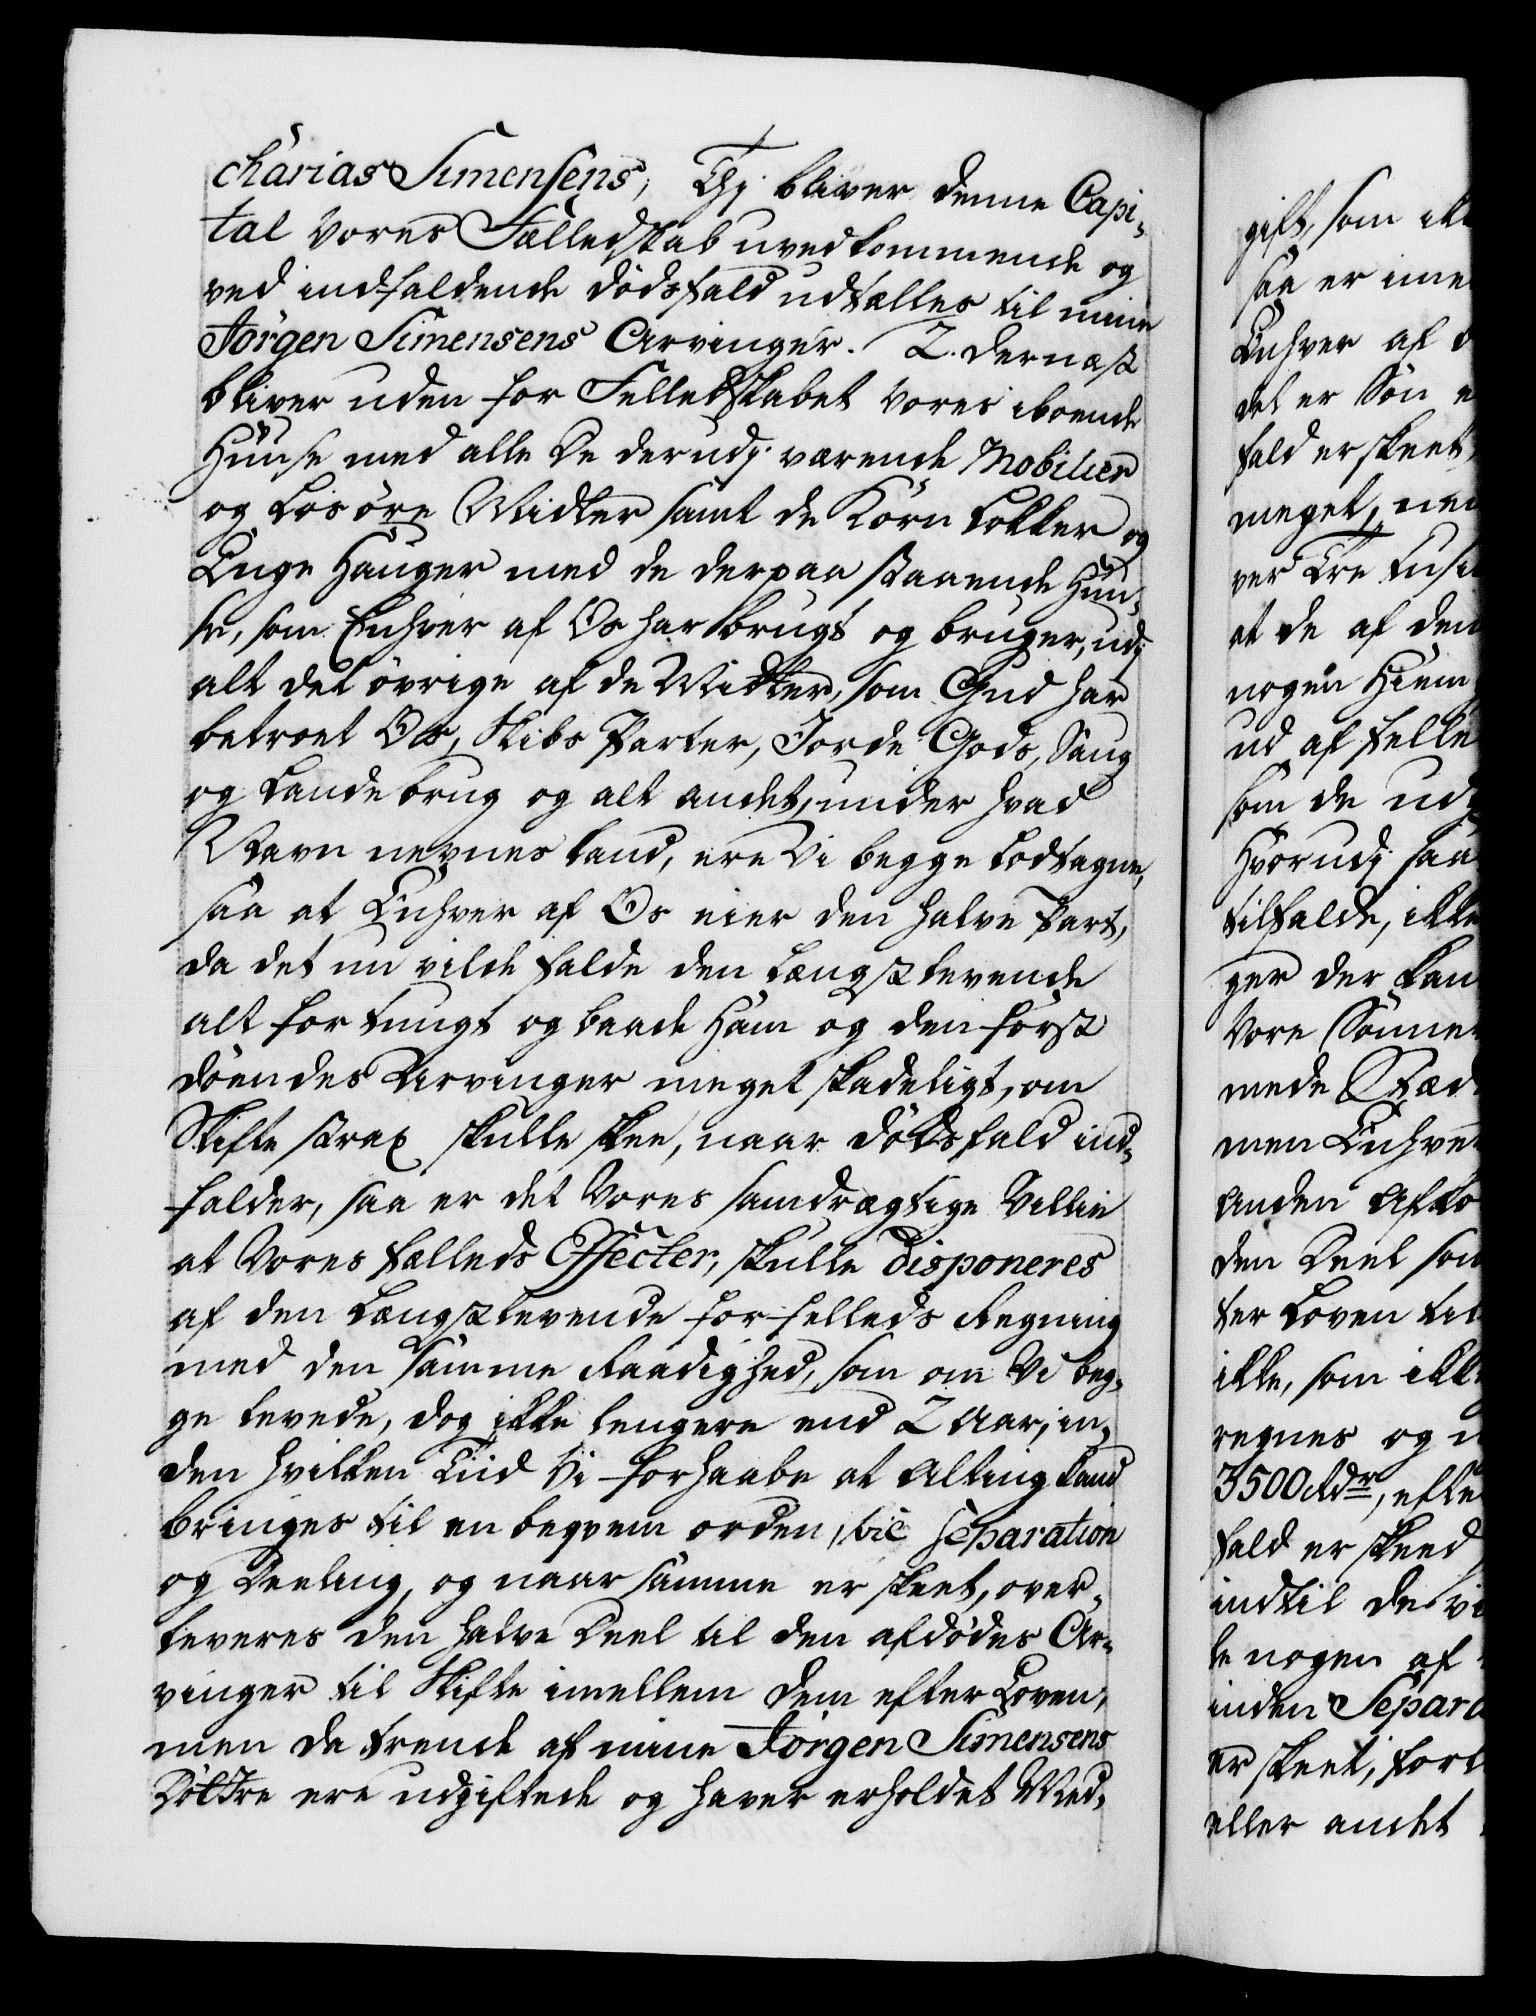 charias Simensens, Thj bliver denne Capi-
tal vores Fælledskab uvedkommende og
ved indfaldende dödsfald udfælles til mine
Jörgen Simensens Arvinger. 2. dernæst
bliver uden for Felledskabet vores iboende
Huuse med alle de derudj værende Mobilier
og Losöre Midler samt de Korn Lökker og
Enge Hauger med de derpaa staaende Huu-
se, som Enhver af Os har brugt og bruger, udj
alt det övrige af de Midler, som Gud har
betroet Os, Skibs Parter, Jorde Gods, Saug
og Landebrug og alt andet, under hvad
Navn nevnes kand, ere Vi begge Lodtagne,
saa at Enhver af Os eier den halve Part,
da det nu vilde falde den Længstlevende
alt for tungt og baade Ham og den först
döendes Arvinger meget skadeligt, om
Skifte strax skulle skee, naar dödsfald ind-
falder, saa er det Vores samdrægtige Villie
at Vores fælleds Effecter, skulle disponeres
af den Længstlevende for felleds Regning
med den samme Raadighed, som om Vi beg-
ge levede, dog ikke lengere end 2 Aar, in-
den hvilken Tiid Vi forhaabe at Alting kand
bringes til en beqvem orden, til Separation
og Deeling, og naar samme er skeet, over-
leveres den halve Deel til den afdödes Ar-
vinger til Skifte imellem dem efter Loven,
men da trende af mine Jörgen Simensens
Döttre ere udgiftede og haver erholdet Med-
gift, som ikk
saa er ime
Enhver af
det er Sön e
fald er skeet
meget, nem
ver Tre tusi
at de af den
nogen Hiem
ud af felle
som de udj
Hvorudj saa
tilfalde, ikke
ger der kan
Vore Sönner
mede Stæd
men Enhver
anden Afko
den Deel som
ter Loven til
ikke, som ikke
regnes og
3500 Rdr, efter
fald er skeed
indtil de vi
le nogen af
inden Separa
er skeet, for
eller andet